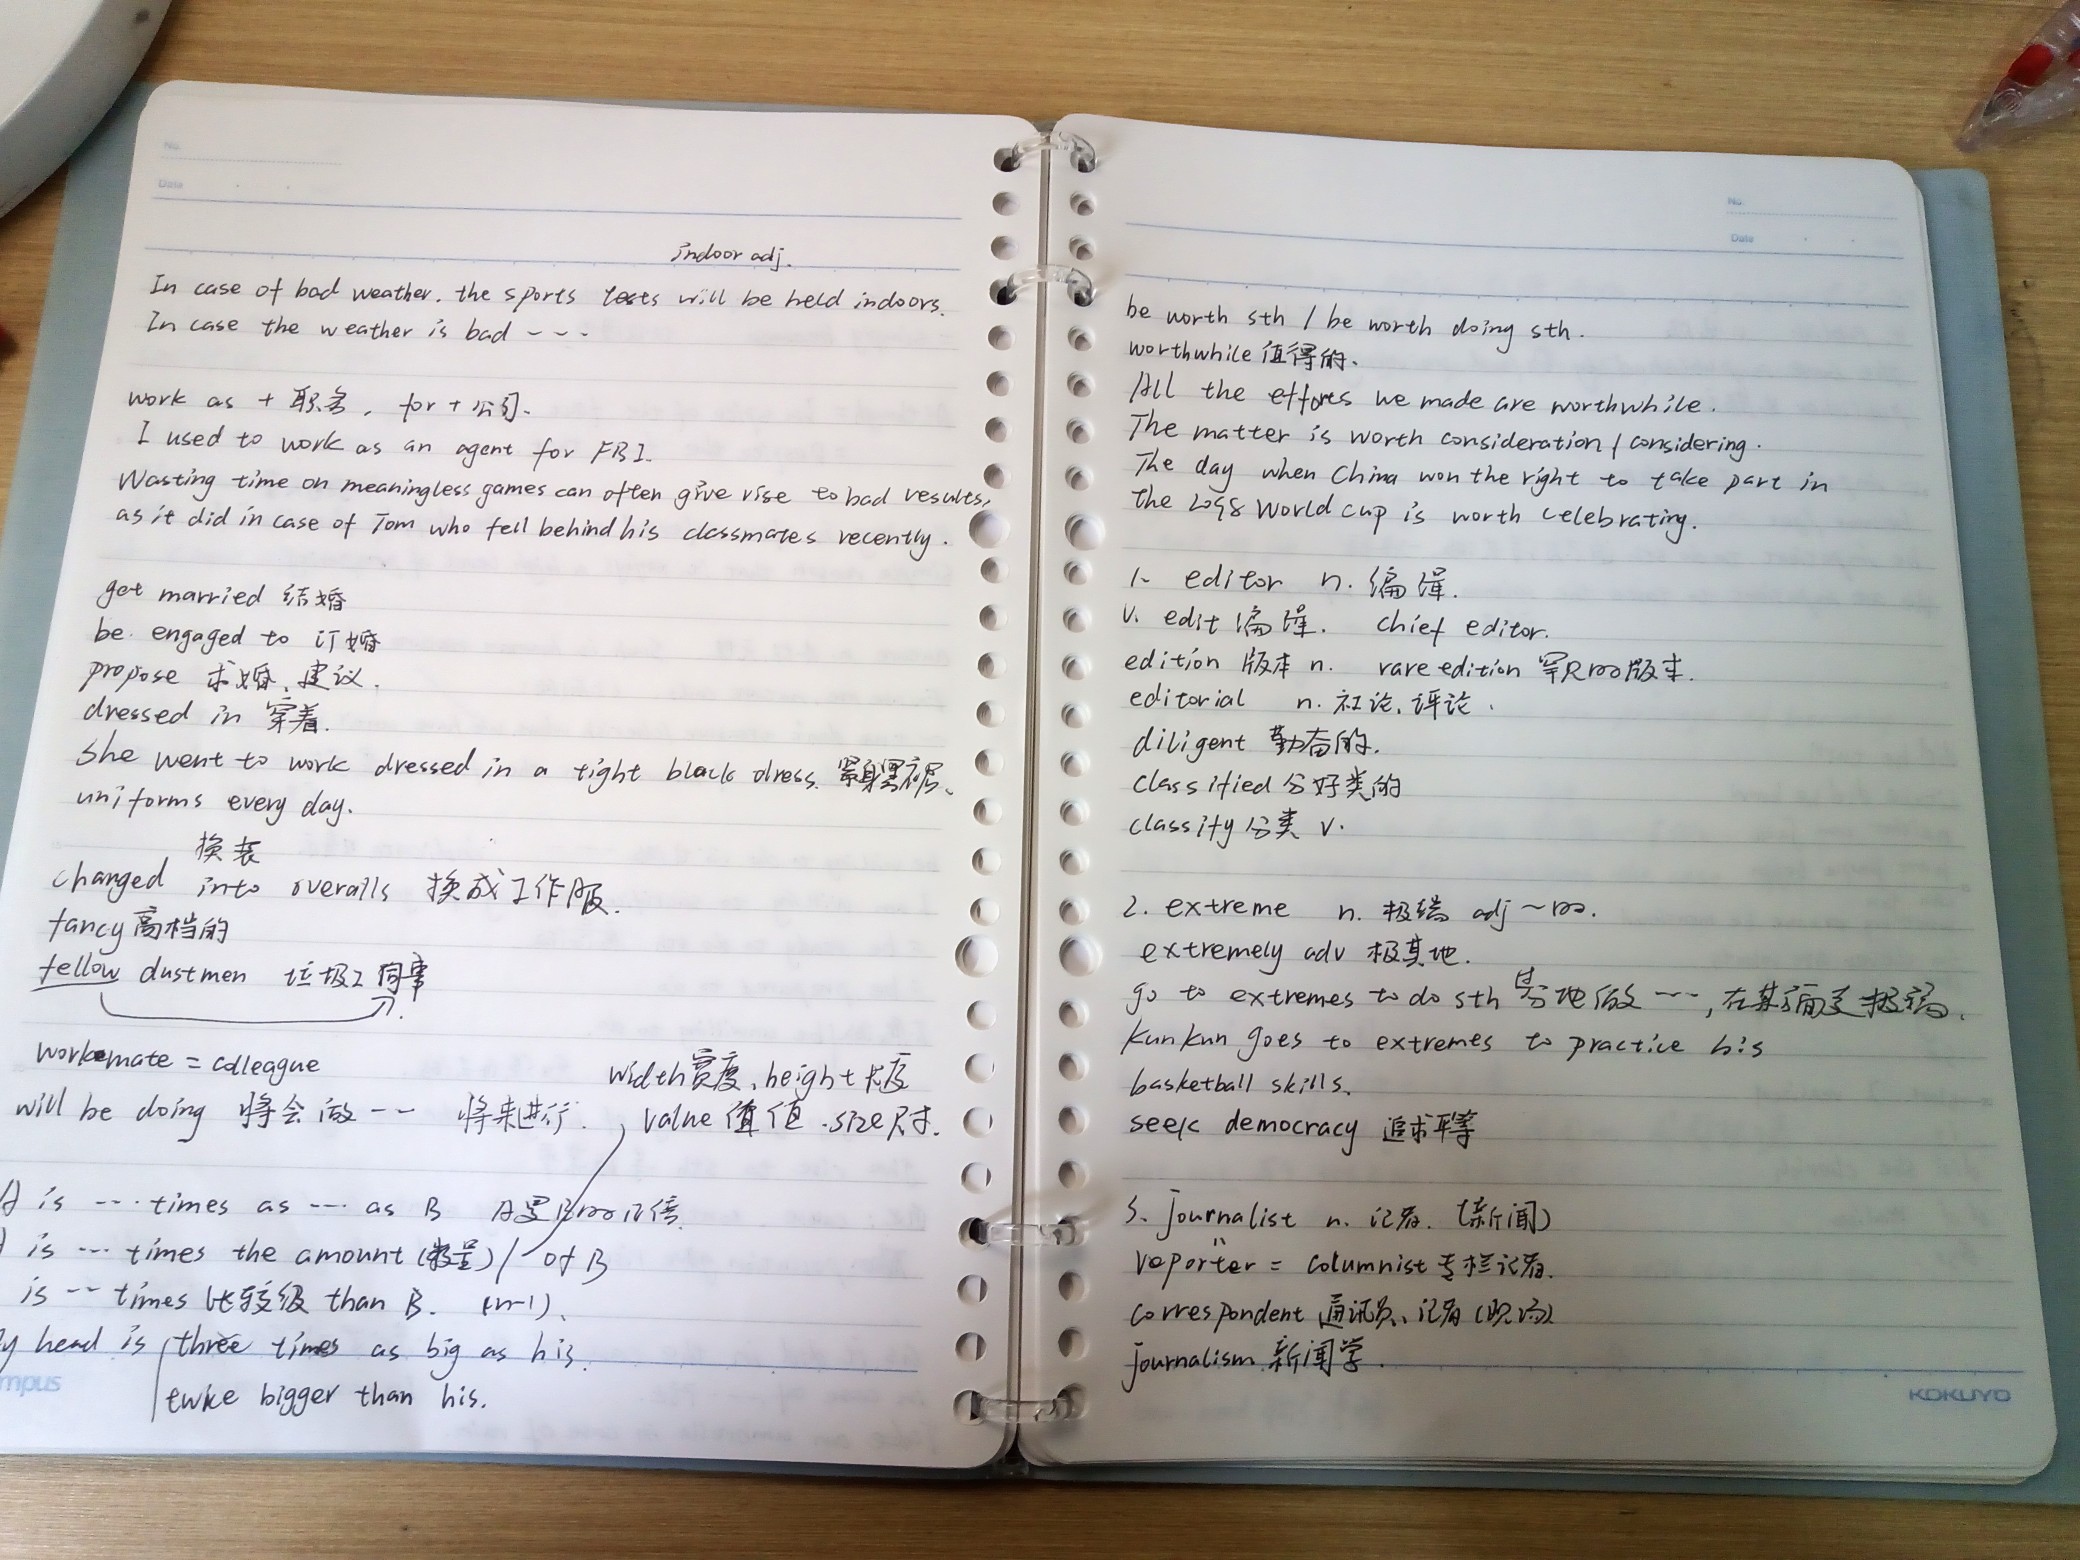 No.
Date
indoor adj.
In case of bad weather. the sports tests will be held indoors.
In case the weather is bad ----
work as + 职务, for + 公司.
I used to work as an agent for FBI.
Wasting time on meaningless games can often give rise to bad results,
as it did in case of Tom who fell behind his classmates recently.
get married 结婚
be engaged to 订婚
propose 求婚、建议.
dressed in 穿着.
She went to work dressed in a tight black dress. 紧身黑衣
uniforms every day.
换装
changed into overalls 换成工作服.
fancy 高档的
fellow dustmen 垃圾工同事
workmate = colleague
width 宽度、height 长度
will be doing 将会做 --- 将来进行.
value 值 值 .size 尺寸.
A is ---- times as ---- as B A是B的n倍.
is --- times the amount (数量) / of B
is --- times 比较级 than B. (n-1).
y head is three times as big as his.
twice bigger than his.
mpus
No.
Date
be worth sth / be worth doing sth.
worthwhile 值得的.
All the efforts we made are worthwhile.
The matter is worth consideration / considering.
The day when China won the right to take part in
the 2098 World cup is worth celebrating.
1. editor n. 编辑.
v. edit 编辑. chief editor.
edition 版本 n. rare edition 罕见的版本.
editorial n. 社论、评论.
diligent 勤奋的.
classified 分好类的
classify 分类 v.
2. extreme n. 极端 adj ~的.
extremely adv 极其地.
go to extremes to do sth 地做 ----, 在某方面走极端.
KunKun goes to extremes to practice his
basketball skills.
seek democracy 追求平等
3. journalist n. 记者. (新闻)
reporter = columnist 专栏记者.
correspondent 通讯员、记者 (现场)
journalism 新闻学.
KOKUYO